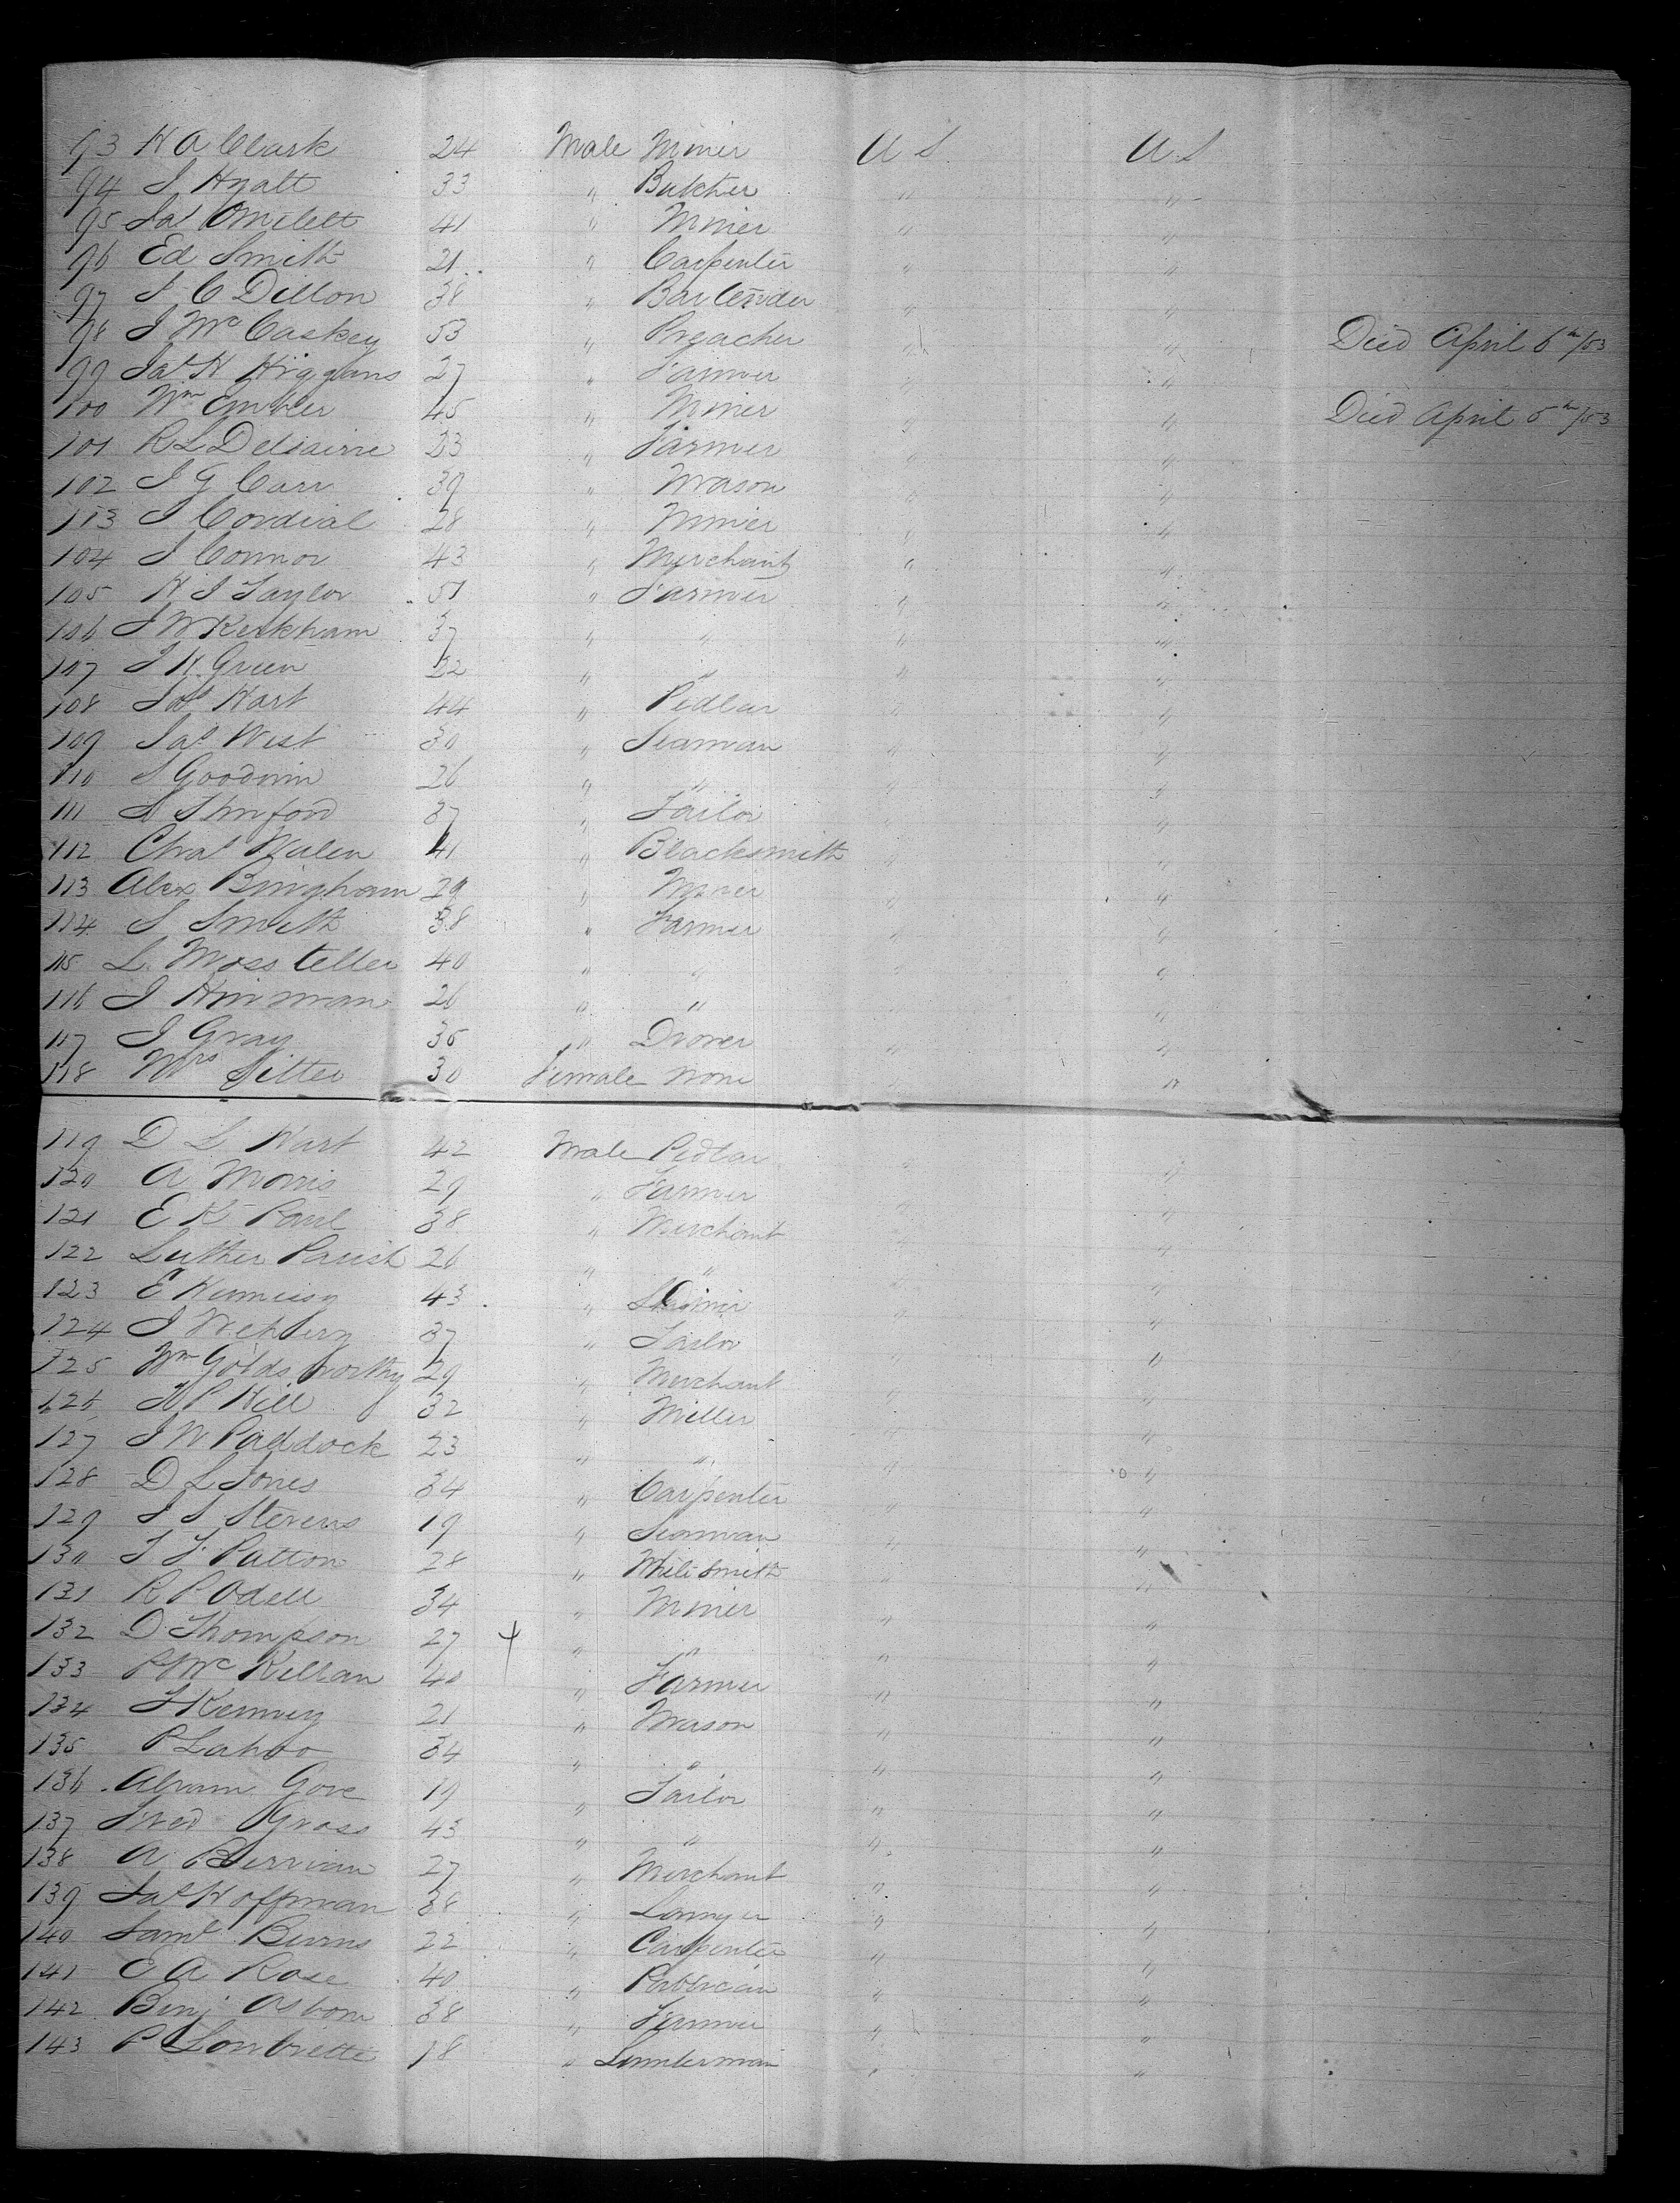 93 H A Clark 24 Male Miner U S U S
94 J Hyatt 33 " Butcher " "
95 Jas Omilett 41 " Miner " "
96 Ed Smith 21 " Carpenter " "
97 J C Dillon 38 " Bartender " "
98 J McCaskey 53 " Preacher " " Died April 6th/53
99 Jas H Higgans 27 " Farmer " "
100 Wm Embler 45 " Miner " " Died April 5th/53
101 R L 23 " Farmer " "
102 J G Carr 39 " Mason " "
113 J Cordial 28 " Miner " "
104 J Connor 43 " Merchant " "
105 H J Taylor 51 " Farmer " "
106 J W Kerkham 37 " " " "
107 J H Green 22 " " " "
108 Jas Hart 44 " Pedlar " "
109 Jas West 30 " Seaman " "
110 S Goodwin 26 " " " "
111 37 " Tailor " "
112 Chas Walen 41 " Blacksmith " "
113 Alex Bingham 29 " Miner " "
114 S Smith 38 " Farmer " "
115 L. Moss teller 40 " " " "
116 J Hinman 26 " " " "
117 J Gray 35 " Drover " "
118 Mrs Sitter 30 Female None " "
119 D L Hart 42 Male Pedlar " "
120 A Morris 29 " Farmer " "
121 E K Paul 38 " Merchant " "
122 Luther Parish 26 " " " "
123 E 43 " " "
124 J 37 " Tailor " "
125 Wm Goldsworthy 29 " Merchant " "
126 H P Hill 32 " Miller " "
127 J W Paddock 23 " " " "
128 D L Jones 34 " Carpenter " "
129 J S Stevens 19 " Seaman " "
130 T J Patton 28 " White Smith " "
131 R P Odell 34 " Miner " "
132 D Thompson 27 " " " "
133 P Mc Killan 40 " Farmer " "
134 J Kenney 21 " Mason " "
135 P Lahoo 34 " " " "
136 Abram Gove 19 " Tailor " "
137 Fred Gross 43 " " " "
138 A Berrian 27 " Merchant " "
139 Jas Hoffman 38 " Lawyer " "
140 Saml Burns 22 " Carpenter " "
141 E A Rose 40 " Publican " "
142 Benj Osborn 38 " Farmer " "
143 P 18 " Lumberman " "